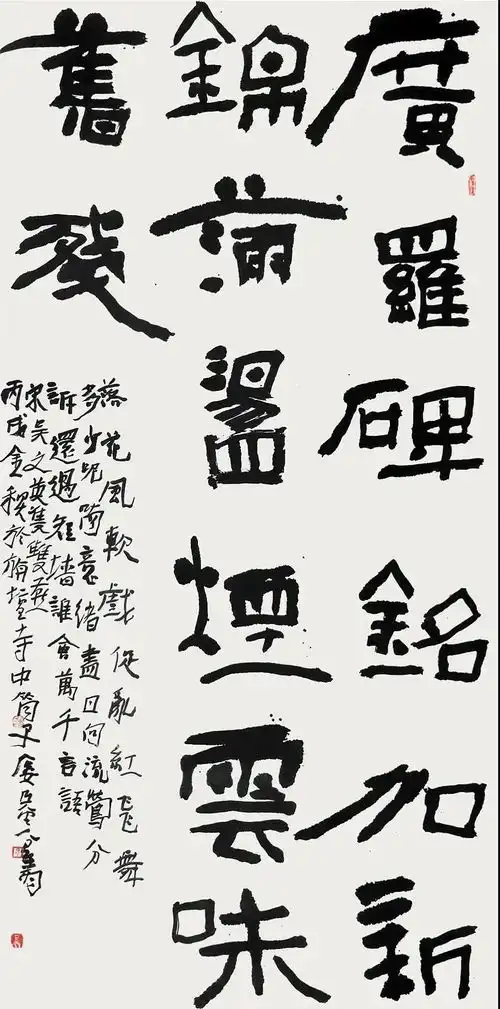 廣羅碑銘加新
錦滿盪煙雲味
舊殘
落花風軟戲促亂紅飛舞
多少呢喃意緒盡日向流鶯分
訴還過短墻誰會萬千言語
宋吳文英雙雙燕
丙戌金秋於旃壇寺中